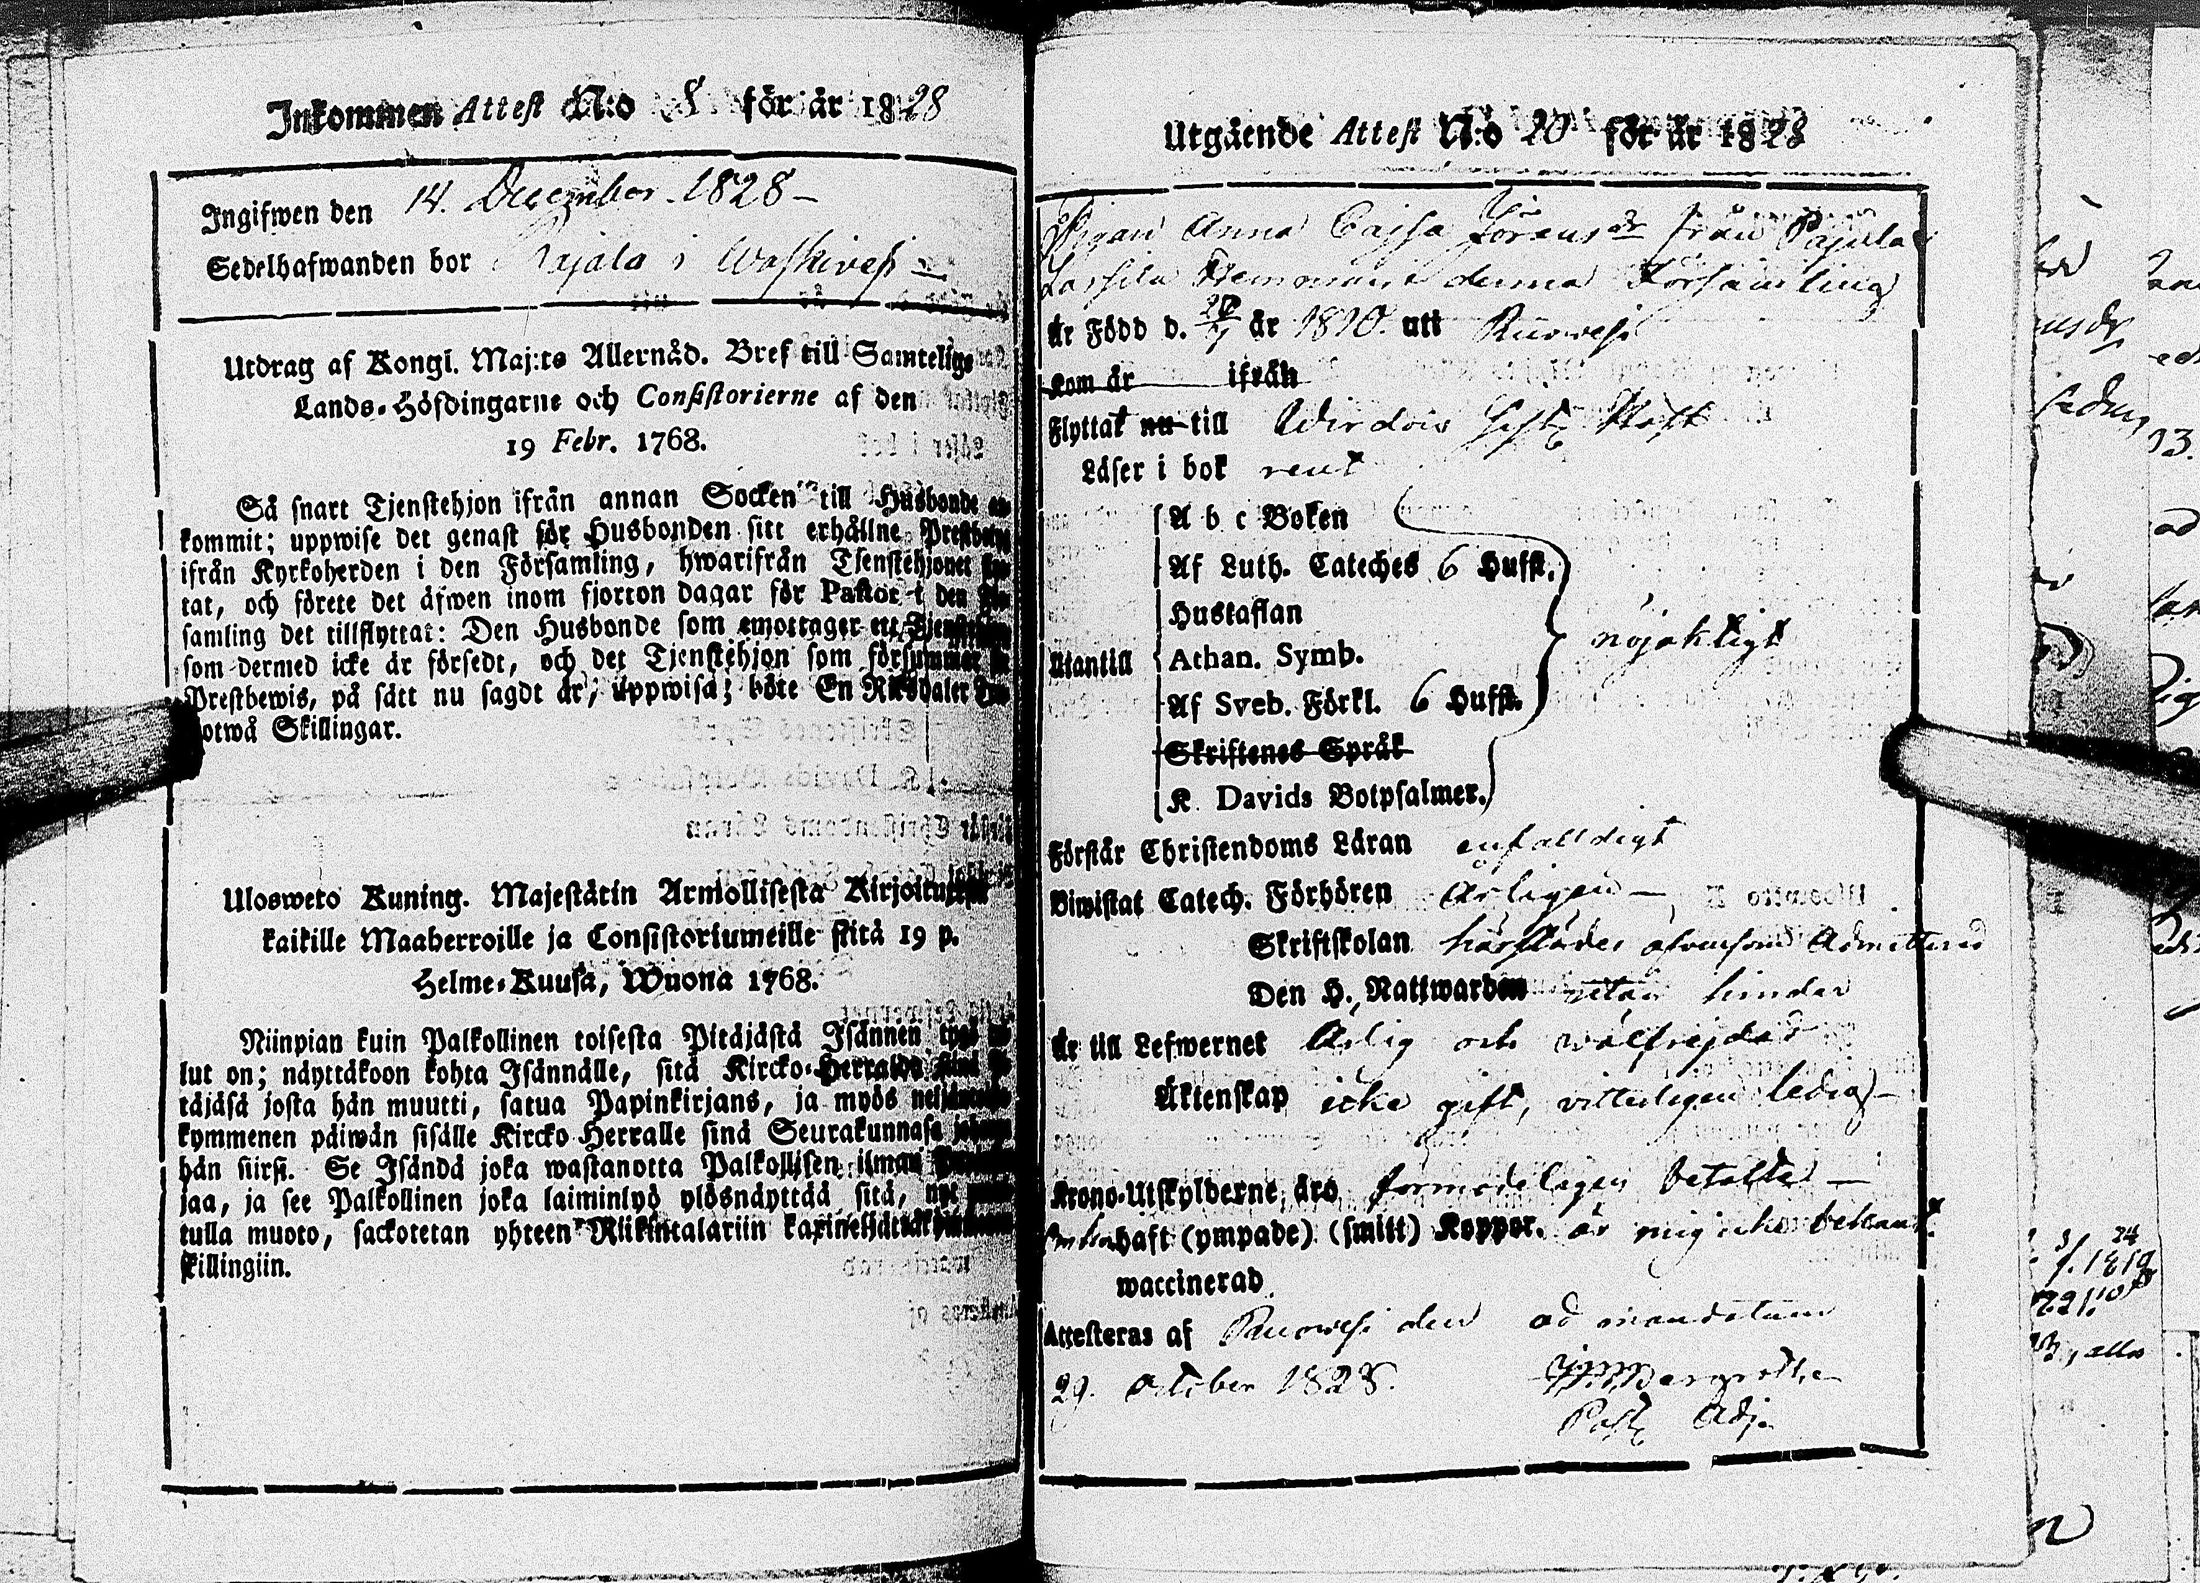 Inkommen Attest N:o 8 för år 1828
Ingifwen den 14. December 1828 –
Sedelhafwanden bor Rajala i Waskivesi –
Utdrag af Kongl. Maj:ts Allernåd. Bref till Samtelige
Lands-Höfdingarne och Consistorierne af den
19 Febr. 1768.
Så snart Tjenstehjon ifrån annan Socken till Husbonde
kommit; uppwise det genast för Husbonden sitt erhållne
ifrån Kyrkoherden i den Församling, hwarifrån Tjenstehjonet
tat, och förete det äfwen inom fjorton dagar för Pastor i den
samling det tillflyttat: Den Husbonde som emottager ett
som dermed icke är försedt, och det Tjenstehjon som försummar
Prestbewis, på sätt nu sagdt är, uppwisa; böte En Riksdaler
otwå Skillingar.
Ulosweto Kuning. Majestätin Armollisesta
kaikille Maaherroille ja Consistoriumeille siitä 19 p.
Helme-Kuusa, Wuona 1768.
Niinpian kuin Palkollinen toisesta Pitäjästä Isännen tygö
lut on; näyttäkoon kohta Isännälle, sitä Kircko-Herralda
täjäsä josta hän muutti, satua Papinkirjans, ja myös
kymmenen päiwän sisälle Kircko Herralle sinä Seurakunnasa
hän siirsi. Se Isändä joka wastanotta Palkollisen ilman
jaa, ja see Palkollinen joka laiminlyö ylösnäyttää sitä, nyt
tulla muoto, sackotetan yhteen Riikintalariin
skillingiin.
Utgående Attest N:o 20 för år 1828
Pigan Anna Cajsa Jöransdr från Pajula
Lassila Hemman i denna Församling
Är Född d. år 1810. utt Ruowesi
kom år ifrån
Flyttat nu till Wirdois
Läser i bok rent
Utantill
A b c Boken
Af Luth. Cateches 6 Hufst.
Hustaflan
Athan. Symb.
Af Sveb. Förkl. 6 Hufst.
Skriftenes Språk
K. Davids Botpsalmer.
nöjaktigt
Förstår Christendoms Läran enfalldigt
Biwistat Catech. Förhören Årligen –
Skriftskolan härstädes äfvensom Admitterad
Den H. Nattwarden utan hinder
Är till Lefwernet Ärlig och wälfrejdad
Äktenskap icke gift, vitterligen ledig –
Krono-Utskylderne äro förmodeligen betalte –
haft (ympade) (smitt) Koppor. är mig icke bekant.
waccinerad
Attesteras af Ruowesi den ad mandatum
29. October 1828. Bergroth
Past. Adj.